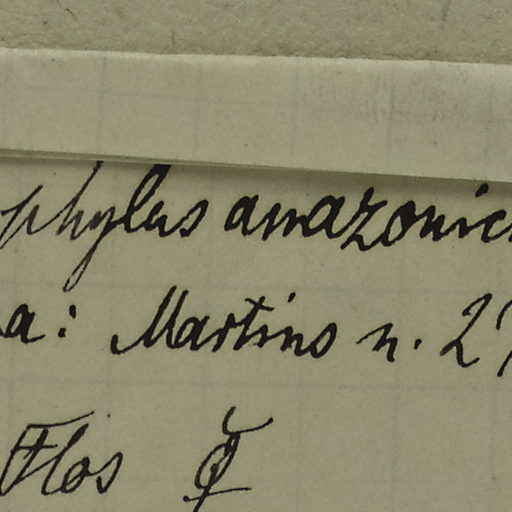 phylus amazonic
a: Martins n. 27
Flos ☿